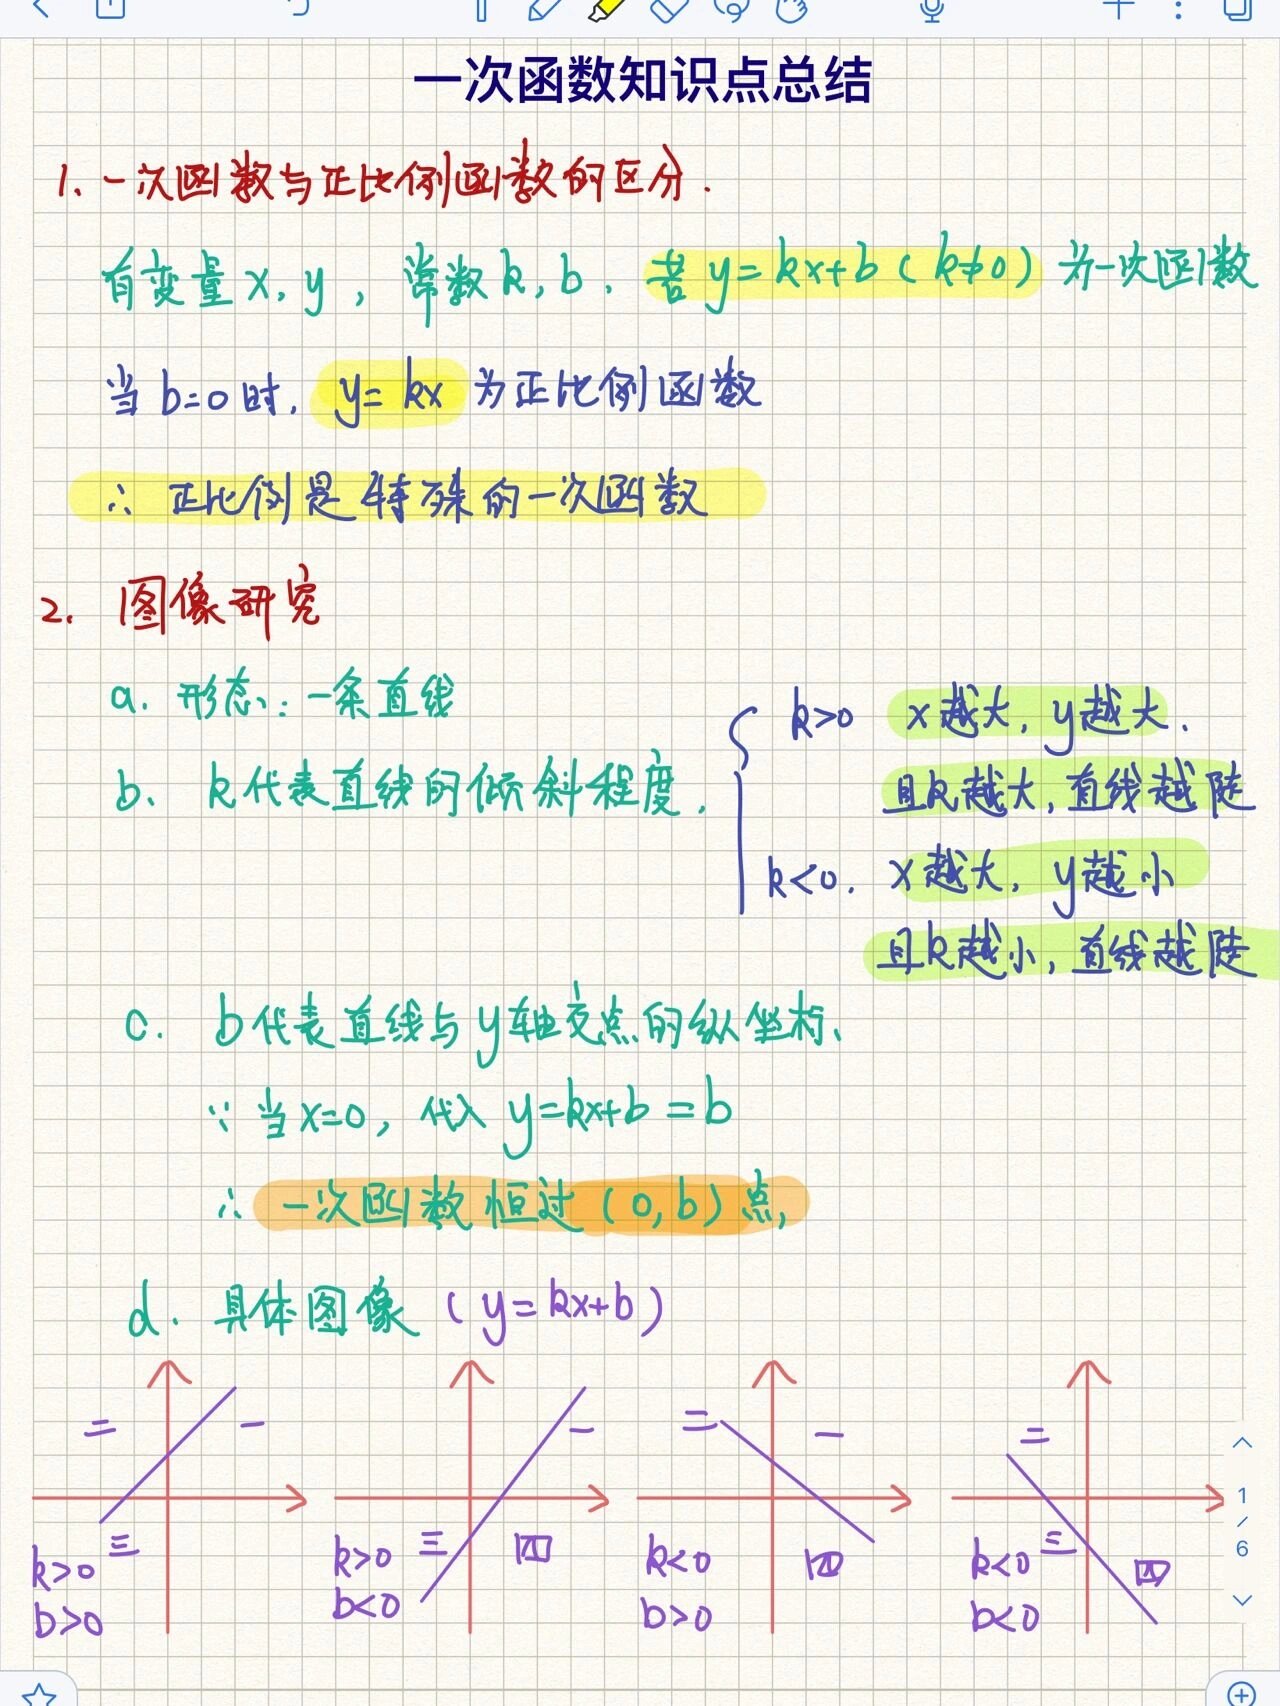 一次函数知识点总结
1、一次函数与正比例函数的区分.
有变量x,y,常数k,b.若y=kx+b(k≠0)为一次函数
当b=0时,y=kx为正比例函数
∴正比例是特殊的一次函数
2.图像研究
a.形态:一条直线
b、k代表直线的倾斜程度.
k>0 x越大,y越大.
且k越大,直线越陡
k<0. x越大,y越小
且k越小,直线越陡
c.b代表直线与y轴交点的纵坐标、
∵当x=0,代入y=kx+b=b
∴一次函数恒过(0,b)点,
d.具体图像(y=kx+b)
二 一
三
k>0
b>0
一
三 四
k>0
b<0
二 一
四
k<0
b>0
二
三 四
k<0
b<0
1
/
6